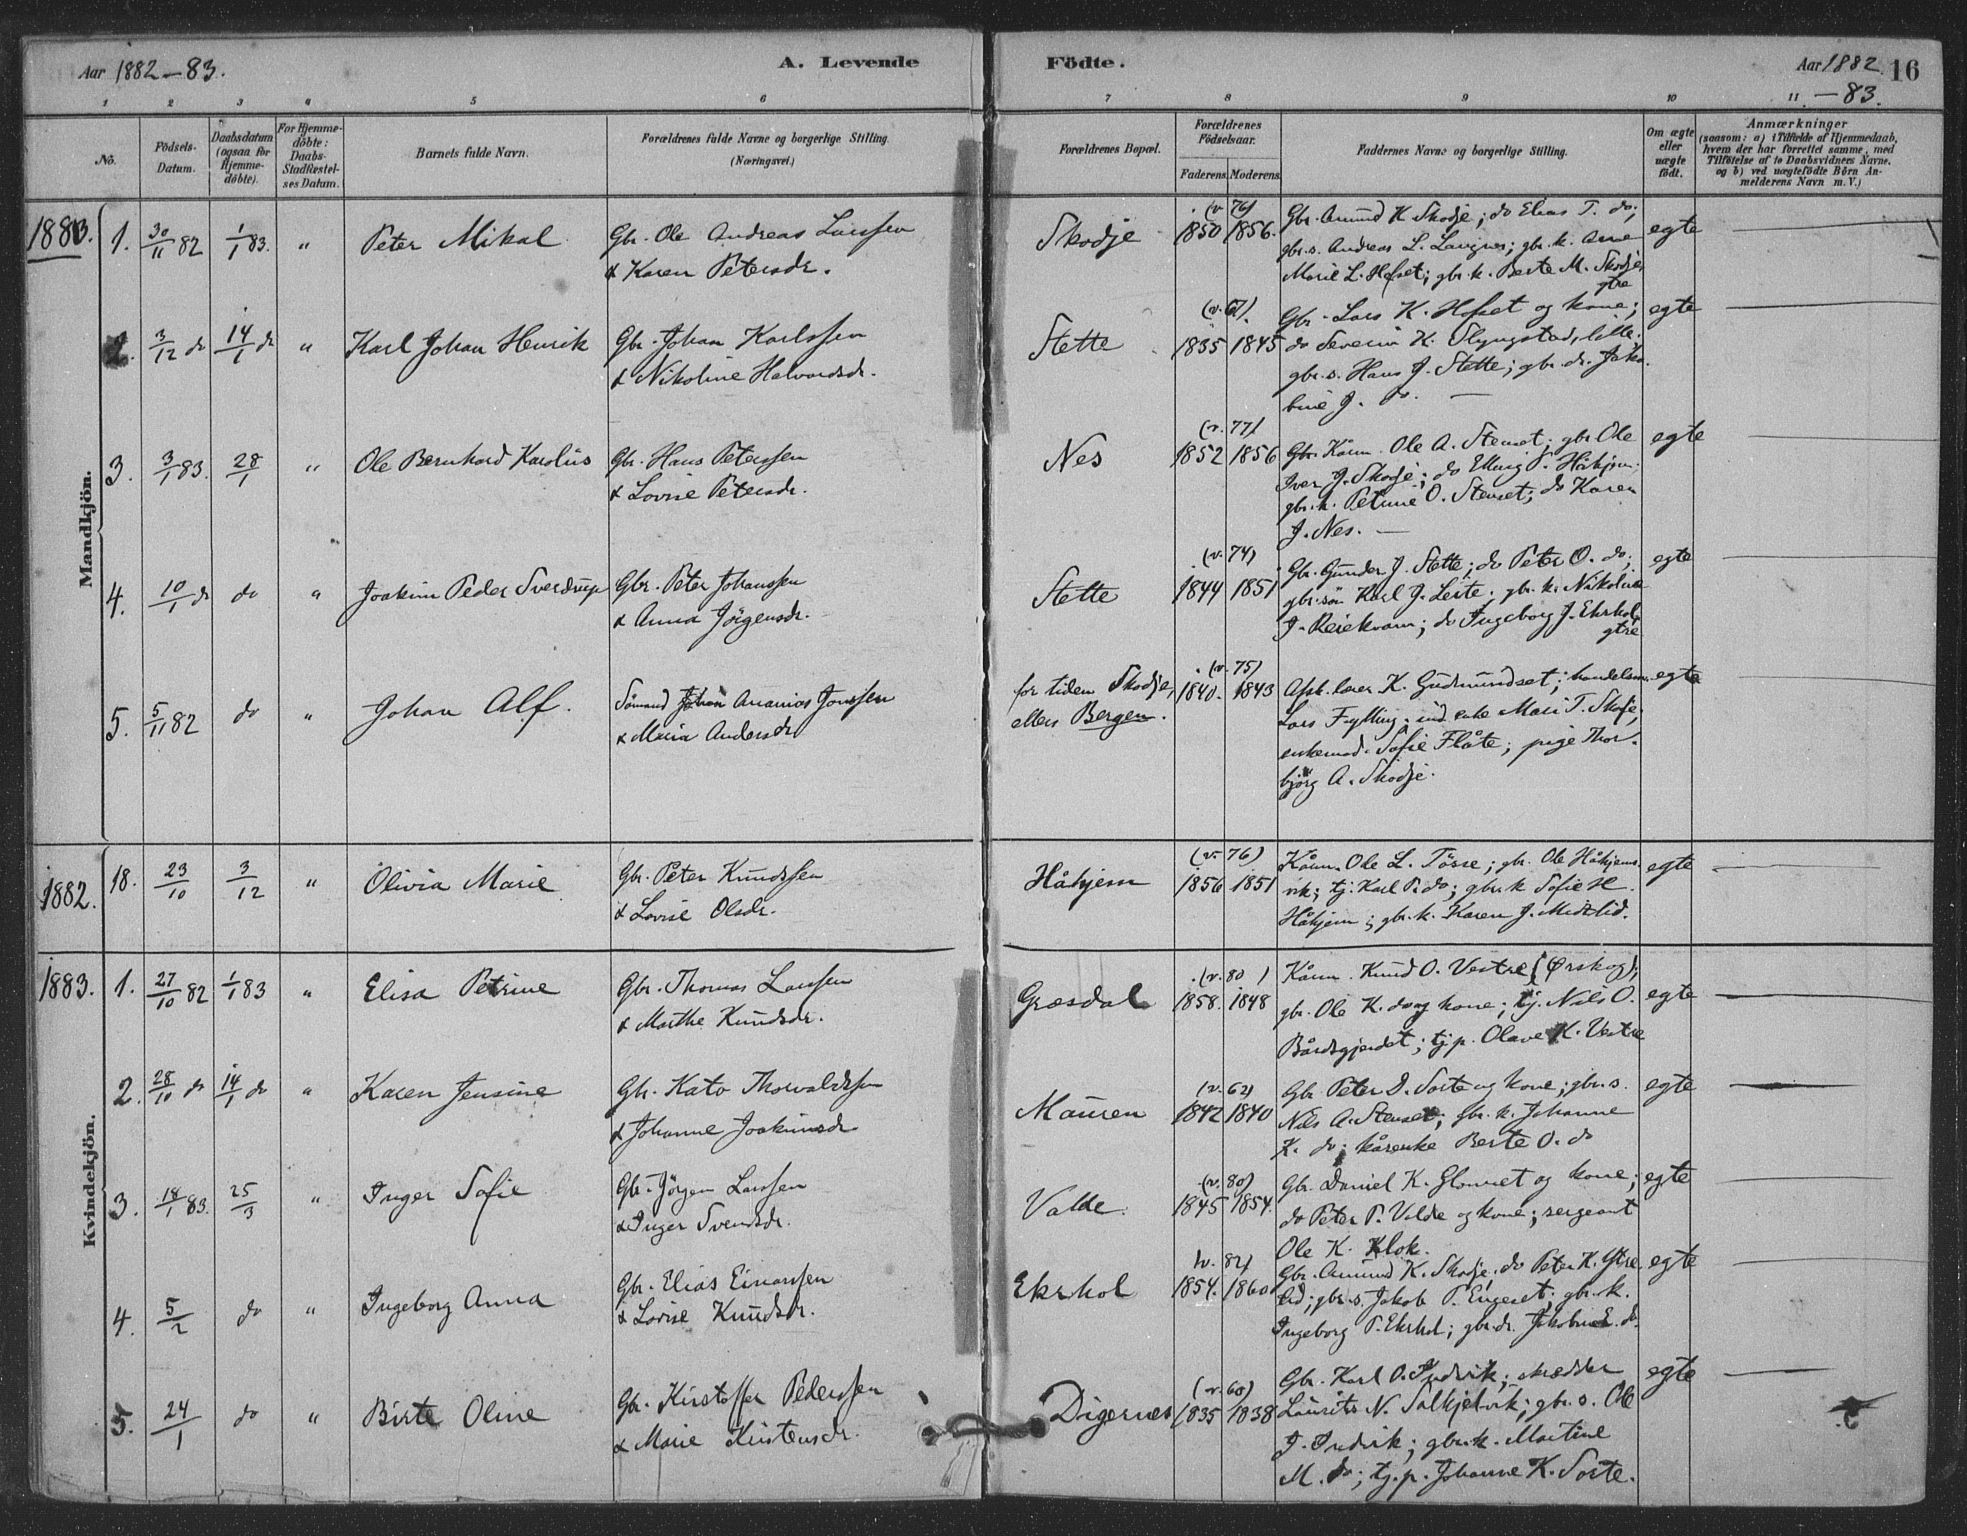 Aar 1882-83.
A. Levende
Födte.
Aar 1882 16
-83.
1 2 3 4 5 6 7 8 9 10 11
No.
Födsels-Datum.
Daabsdatum (ogsaa for Hjemme-döbte).
For Hjemme-döbte: Daabs-Stadfæstel-ses Datum.
Barnets fulde Navn.
Forældrenes fulde Navne og borgerlige Stilling.
(Næringsvei.)
Forældrenes Bopæl.
Forældrenes Födselsaar.
Faderens. Moderens.
Faddernes Navne og borgerlige Stilling.
Om ægte eller uægte født.
Anmærkninger
(saasom: a) i Tilfælde af Hjemmedaab, hvem der har forrettet samme, med Tilföielse af to Daabsvidners Navne, og b) ved uægtefödte Börn An-melderens Navn m. V.)
Mandkjön.
1883. 1. 30/11 82 1/1 83. " Peter Mikal Gbr. Ole Andreas Larssen
& Karen Petersdr.
Skodje (v. 76) 1850 1856. Gbr. Amund K. Skodje; do Elias T. do;
gbr.s. Andreas L. Langnes; gbr. k. Anne
Marie L. Hofset; gbr. k. Berte M. Skodje
egte
2. 3/12 do 14/1 do " Karl Johan Henrik Gbr. Johan Karlssen
& Nikoline Halvardsdr.
Stette (v. 67). 1835 1845 Gbr. Lars K. Hofset og kone;
do Severin K. Slyngstad, lille;
gbr.s. Hans J. Stette; gbr. dr. Jako
bine J. do. —
egte
3. 3/1 83. 28/1 " Ole Bernhard Karolus Gbr. Hans Peterssen
& Lovise Petersdr.
Nes (v. 77) 1852 1856 Gbr. Kåm. Ole A. Stenset; gbr. Ole
Iver J. Skodje; do Elling P. Håhjem.
gbr.k. Petrine O. Stenset; do Karen
J. Nes. —
egte
4. 10/1 do do " Joakim Peder Sverdrup Gbr. Peter Johanssen
& Anna Jörgensdr.
Stette (v. 74) 1844 1851 Gbr. Gunder J. Stette; do Peter O. do;
gbr. sön Karl J. Leite; gbr. k. Nikoline
J. Reiekvam; do Ingeborg J. Ekrhol
egte
5. 5/11 82 do " Johan Alf. Sömand Johan Ananias Jonssen
& Maria Andersdr
for tiden Skodje,
ellers Bergen.
(v. 75) 1840. 1843 Afsk. lærer K. Gudmundset; handelsm.
Lars Fylling; ind. enke Mari T. Skodje;
enkemad. Sofie Flåte; pige Thor-
björg A. Skodje.
egte
1882. 18. 23/10 3/12 " Olivia Marie Gbr. Peter Knudssen
& Lovise Olsdr.
Håhjem (v. 76) 1856 1851 Kåm. Ole L. Tösse; gbr. Ole Håhjems-
vik; tj. Karl P. do; gbr. k Sofie H.
Håhjem; gbr. k. Karen J. Midtlid.
egte
Kvindekjön.
1883. 1. 27/10 82 1/1 83 " Elisa Petrine Gbr. Thomas Larssen
& Marthe Knudsdr.
Græsdal (v. 80) 1858. 1848 Kåm. Knud O. Vestre (Ørskog);
gbr. Ole K. do og kone; tj. Nils O.
Bårdsgjerdet; tj.p. Olave K. Vestre
egte
2. 28/10 do 14/1 do " Karen Jensine Gbr. Kato Thorvaldssen
& Johanne Joakimsdr
Mauren (v. 62) 1842 1840 Gbr. Peter D. Sorte og kone; gbr.s.
Nils A. Stenset; gbr. k. Johanne
K. do; kårenke Berte O. do
egte
3. 18/1 83. 25/3 " Inger Sofie Gbr. Jörgen Larssen
& Inger Svendsdr.
Valde. (v. 80) 1845 1854. Gbr. Daniel K. Glomset og kone;
do Peter P. Valde og kone; sergeant
Ole K. Klok.
egte
4. 5/2 do " Ingeborg Anna Gbr. Elias Einarssen
& Lovise Knudsdr.
Ekrhol (v. 82) 1854. 1860 Gbr. Amund K. Skodje; do Peter K. Ytre
lid; gbr. s. Jakob P. Engeset; gbr. k.
Ingeborg P. Ekrhol; gbr. dr. Jakobine E. do.
egte
5. 24/1 do " Birte Oline Gbr. Kristoffer Pederssen
& Marie Kristensdr.
Digernes (v. 60) 1835 1838 Gbr. Karl O. Indvik; skrædder
Laurits N. Solkjelvik; gbr. s. Ole
J. Indvik; gbr. k. Martine
M. do; tj. p. Johanne K. Sorte.
egte